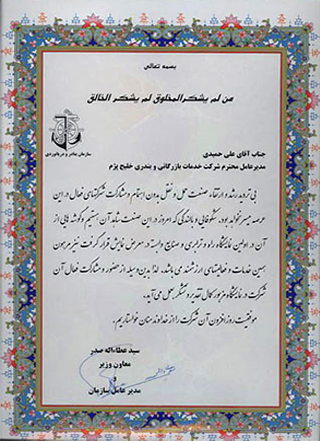 بسمه تعالی
من لم یشکرالمخلوق لم یشکر الخالق
سازمان بنادر و دریانوردی
جناب آقای علی حمیدی
مدیرعامل محترم شرکت خدمات بازرگانی و بندری خلیج پژم
بی تردید رشد و ارتقاء صنعت حمل و نقل بدون اهتمام و مشارکت شرکتهای فعال در این
عرصه میسر نخواهد بود. شکوفایی و بالندگی که امروز در این صنعت شاهد آن هستیم و گوشه هایی از
آن در اولین نمایشگاه راه و ترابری و صنایع وابسته در معرض نمایش قرار گرفت نیز مرهون
همین خدمات و فعالیتهای ارزشمند می باشد. لذا بدین وسیله از حضور و مشارکت فعال آن
شرکت در نمایشگاه مزبور کمال تقدیر و تشکر بعمل می آید.
موفقیت روزافزون آن شرکت را از خداوند منان خواستاریم.
سید عطااله صدر
معاون وزیر
و
مدیر عامل سازمان